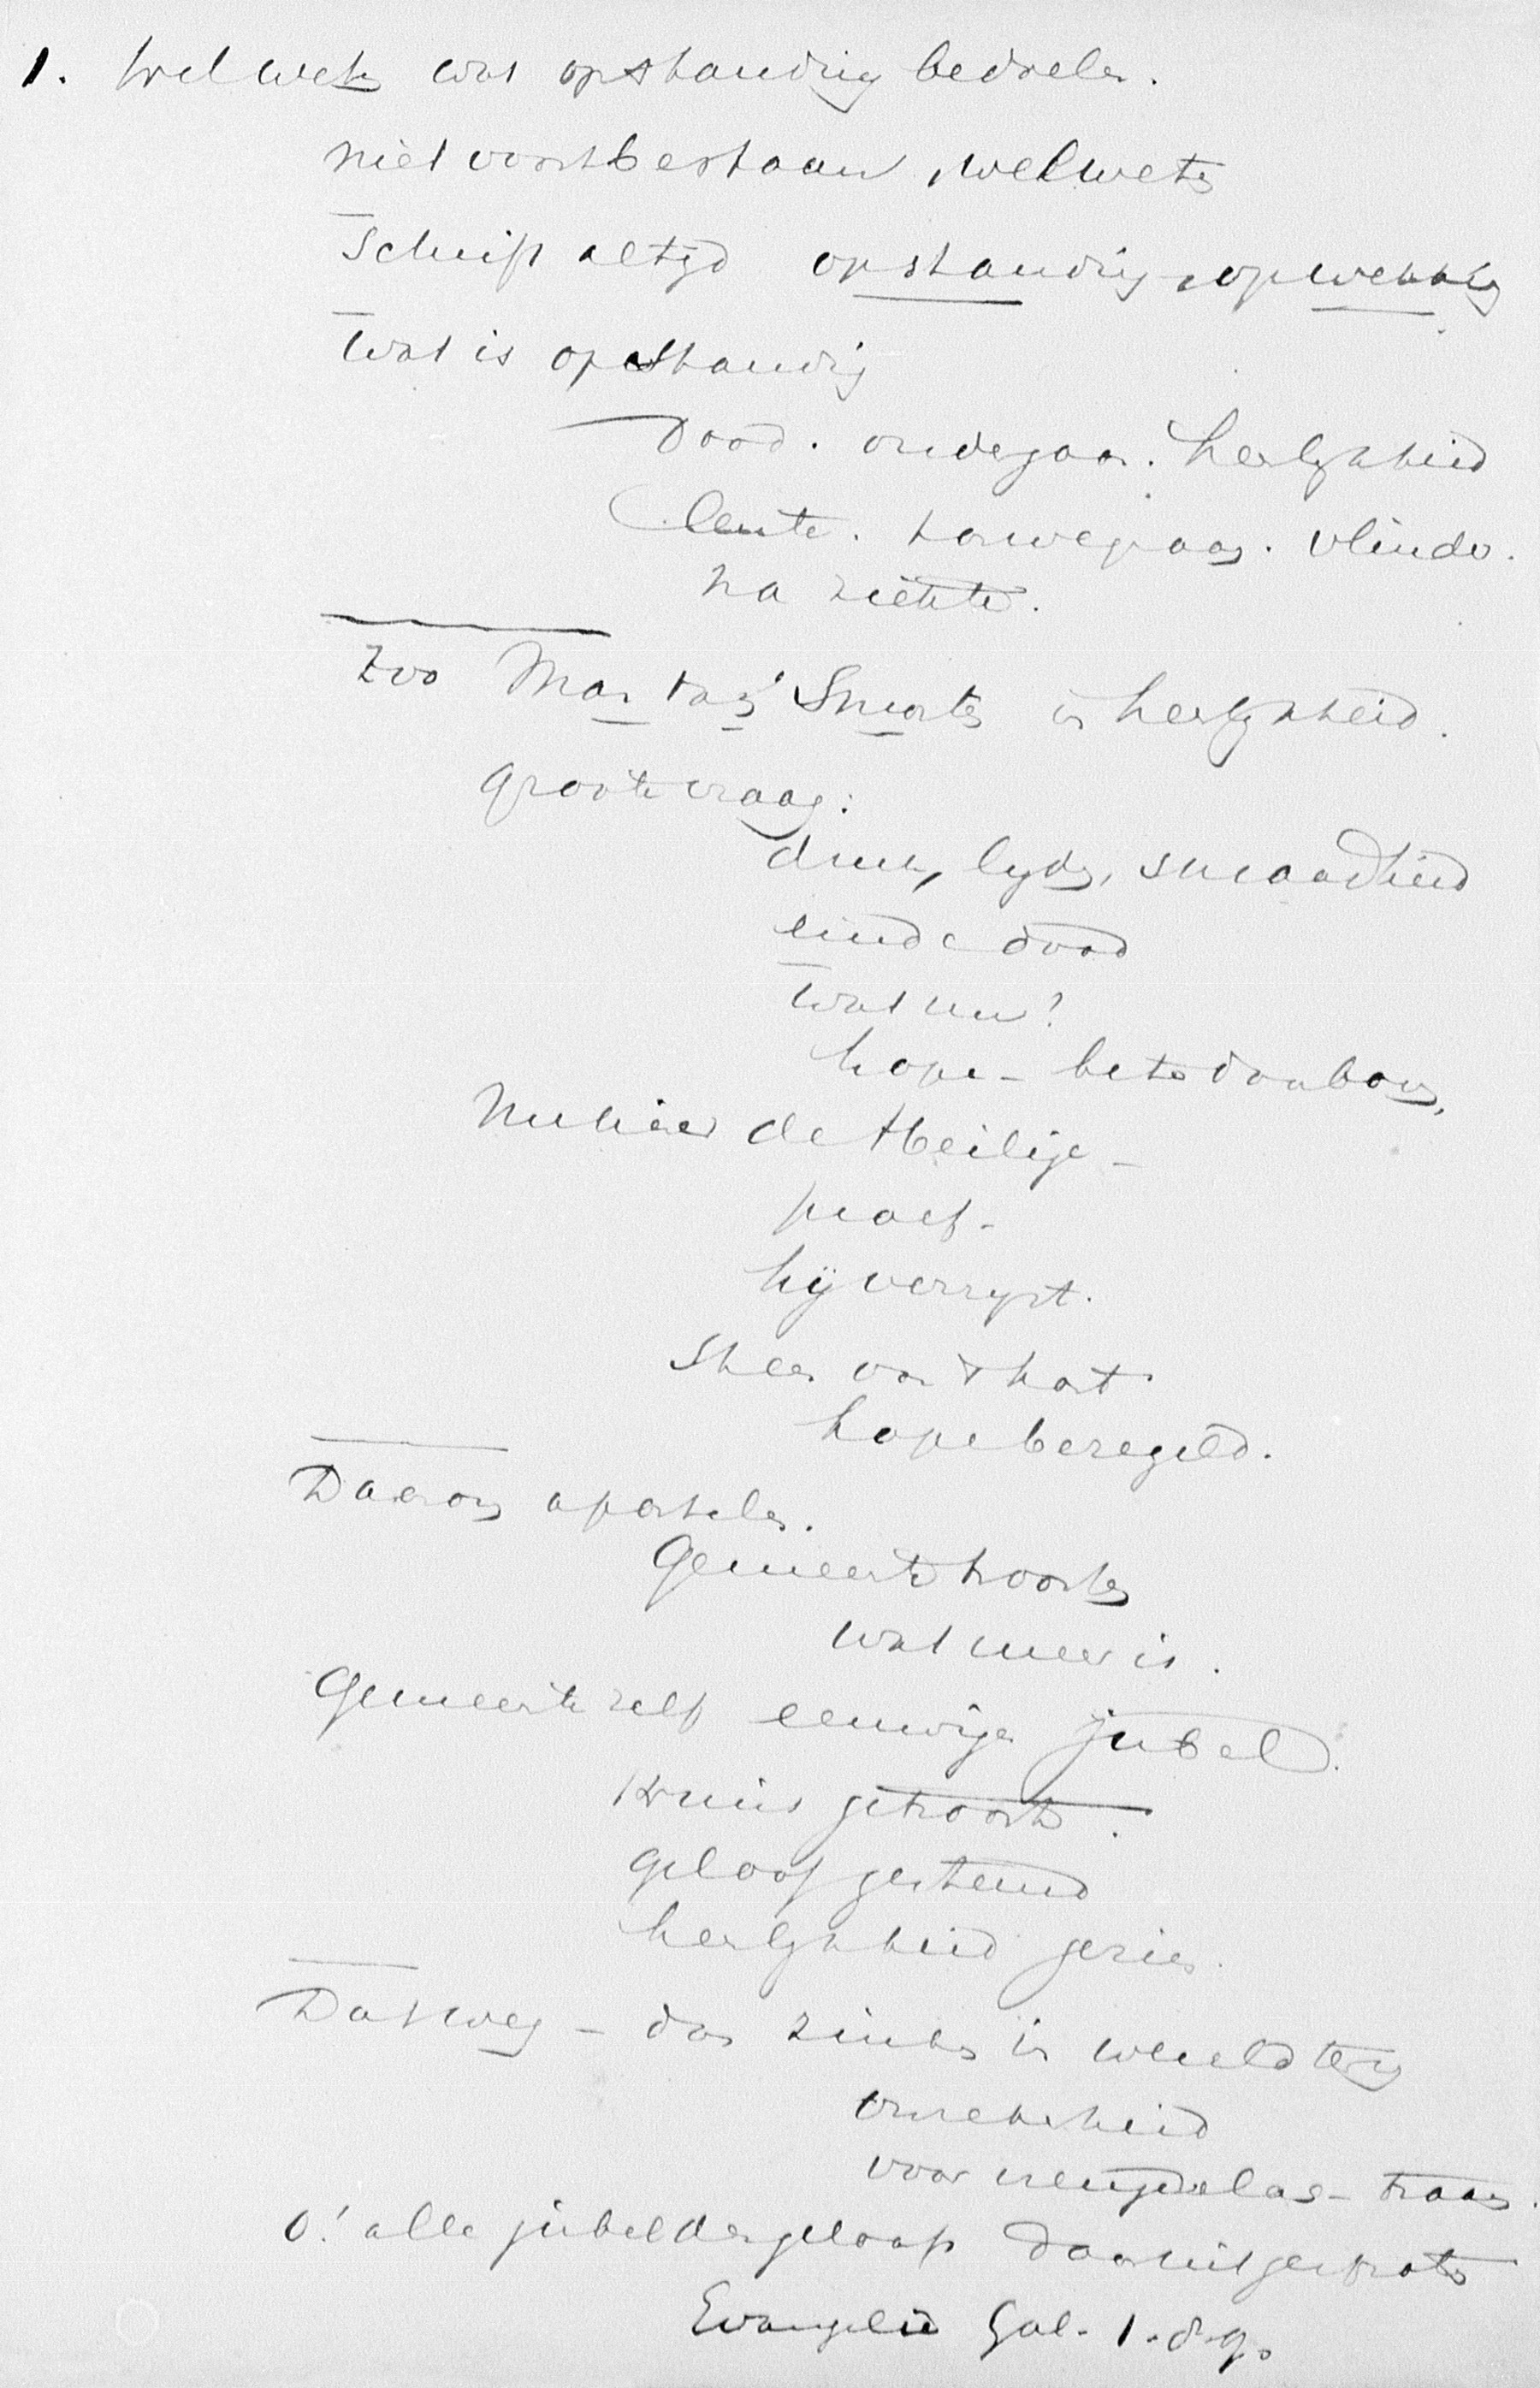 1. Wel weten wat opstanding bedoelen.
niet voortbestaan, wel weten
Schrift altijd opstanding, opwekking
Wat is opstanding
Dood. ondergaan. heerlijkheid
lente. tarwegraan. vlinder.
na ziekte.
Zoo Man van Smarten in heerlijkheid.
groote vraag:
druk, lijden, smaadheid
einde dood
Wat nu?
hope
Nu hier de Heilige -
proef -
hij verrijst.
Steen van 't hart.
hope bezegeld.
Daarom apostelen.
Gemeente troosten
wat meer is.
Gemeente zelf eeuwige jubel.
Kruis getroost.
geloof gesteund
heerlijkheid gezien.
Dat weg - dan zinken in wereld terug
onzekerheid
voor vreugdelach - traan.
O! alle jubel der geloof daaruit gesproten
Evangelie Gal. 1.8.9.